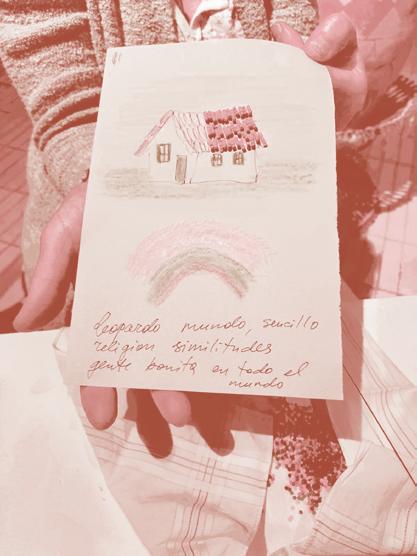 leopardo mundo, sencillo
religion similitudes
gente bonita en todo el
mundo